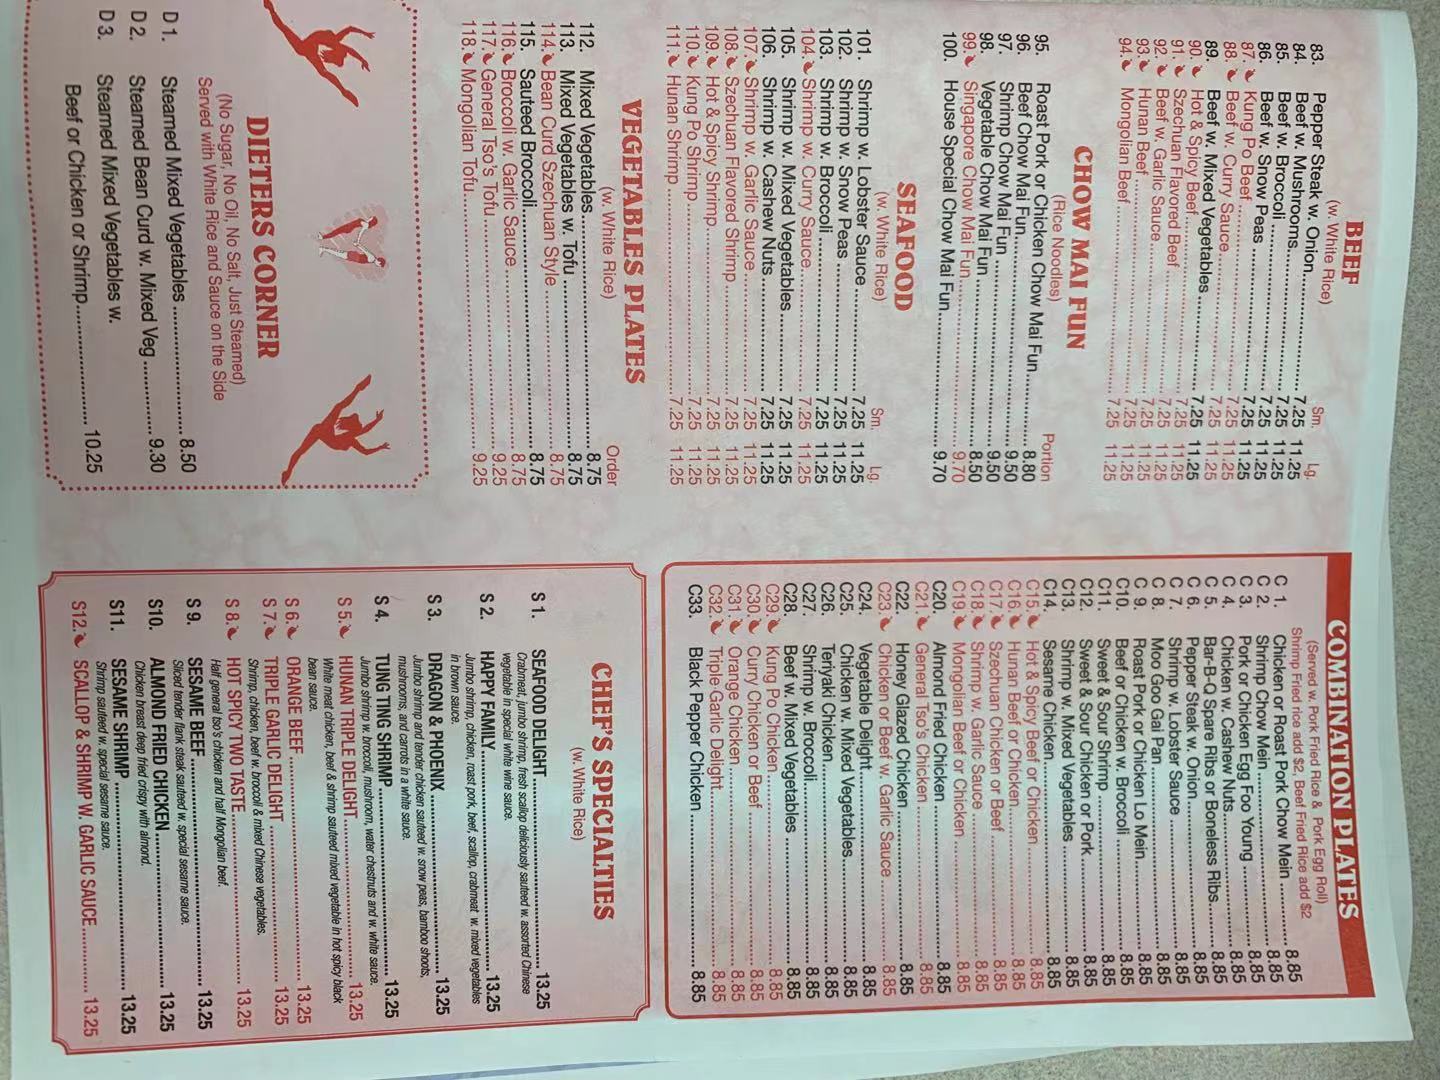 BEEF
(w. White Rice)
Sm. Lg.
83. Pepper Steak w. Onion 7.25 11.25
84. Beef w. Mushrooms 7.25 11.25
85. Beef w. Broccoli 7.25 11.25
86. Beef w. Snow Peas 7.25 11.25
87. Kung Po Beef 7.25 11.25
88. Beef w. Curry Sauce 7.25 11.25
89. Beef w. Mixed Vegetables 7.25 11.25
90. Hot & Spicy Beef 7.25 11.25
91. Szechuan Flavored Beef 7.25 11.25
92. Beef w. Garlic Sauce 7.25 11.25
93. Hunan Beef 7.25 11.25
94. Mongolian Beef 7.25 11.25
CHOW MAI FUN
(Rice Noodles)
Portion
95. Roast Pork or Chicken Chow Mai Fun 8.80
96. Beef Chow Mai Fun 9.50
97. Shrimp Chow Mai Fun 9.50
98. Vegetable Chow Mai Fun 8.50
99. Singapore Chow Mai Fun 9.70
100. House Special Chow Mai Fun 9.70
SEAFOOD
(w. White Rice)
Sm. Lg.
101. Shrimp w. Lobster Sauce 7.25 11.25
102. Shrimp w. Snow Peas 7.25 11.25
103. Shrimp w. Broccoli 7.25 11.25
104. Shrimp w. Curry Sauce 7.25 11.25
105. Shrimp w. Mixed Vegetables 7.25 11.25
106. Shrimp w. Cashew Nuts 7.25 11.25
107. Shrimp w. Garlic Sauce 7.25 11.25
108. Szechuan Flavored Shrimp 7.25 11.25
109. Hot & Spicy Shrimp 7.25 11.25
110. Kung Po Shrimp 7.25 11.25
111. Hunan Shrimp 7.25 11.25
VEGETABLES PLATES
(w. White Rice)
Order
112. Mixed Vegetables 8.75
113. Mixed Vegetables w. Tofu 8.75
114. Bean Curd Szechuan Style 8.75
115. Sauteed Broccoli 8.75
116. Broccoli w. Garlic Sauce 8.75
117. General Tso's Tofu 9.25
118. Mongolian Tofu 9.25
DIETERS CORNER
(No Sugar, No Oil, No Salt, Just Steamed)
Served with White Rice and Sauce on the Side
D 1. Steamed Mixed Vegetables 8.50
D 2. Steamed Bean Curd w. Mixed Veg 9.30
D 3. Steamed Mixed Vegetables w.
Beef or Chicken or Shrimp 10.25
COMBINATION PLATES
(Served w. Pork Fried Rice & Pork Egg Roll)
Shrimp Fried rice add $2, Beef Fried Rice add $2
C 1. Chicken or Roast Pork Chow Mein 8.85
C 2. Shrimp Chow Mein 8.85
C 3. Pork or Chicken Egg Foo Young 8.85
C 4. Chicken w. Cashew Nuts 8.85
C 5. Bar-B-Q Spare Ribs or Boneless Ribs 8.85
C 6. Pepper Steak w. Onion 8.85
C 7. Shrimp w. Lobster Sauce 8.85
C 8. Moo Goo Gai Pan 8.85
C 9. Roast Pork or Chicken Lo Mein 8.85
C10. Beef or Chicken w. Broccoli 8.85
C11. Sweet & Sour Shrimp 8.85
C12. Sweet & Sour Chicken or Pork 8.85
C13. Shrimp w. Mixed Vegetables 8.85
C14. Sesame Chicken 8.85
C15. Hot & Spicy Beef or Chicken 8.85
C16. Hunan Beef or Chicken 8.85
C17. Szechuan Chicken or Beef 8.85
C18. Shrimp w. Garlic Sauce 8.85
C19. Mongolian Beef or Chicken 8.85
C20. Almond Fried Chicken 8.85
C21. General Tso's Chicken 8.85
C22. Honey Glazed Chicken 8.85
C23. Chicken or Beef w. Garlic Sauce 8.85
C24. Vegetable Delight 8.85
C25. Chicken w. Mixed Vegetables 8.85
C26. Teriyaki Chicken 8.85
C27. Shrimp w. Broccoli 8.85
C28. Beef w. Mixed Vegetables 8.85
C29. Kung Po Chicken 8.85
C30. Curry Chicken or Beef 8.85
C31. Orange Chicken 8.85
C32. Triple Garlic Delight 8.85
C33. Black Pepper Chicken 8.85
CHEF'S SPECIALTIES
(w. White Rice)
S 1. SEAFOOD DELIGHT 13.25
Crabmeat, jumbo shrimp, fresh scallop deliciously sauteed w. assorted Chinese
vegetable in special white wine sauce.
S 2. HAPPY FAMILY 13.25
Jumbo shrimp, chicken, roast pork, beef, scallop, crabmeat w. mixed vegetables
in brown sauce.
S 3. DRAGON & PHOENIX 13.25
Jumbo shrimp and tender chicken sauteed w. snow peas, bamboo shoots,
mushrooms, and carrots in a white sauce.
S 4. TUNG TING SHRIMP 13.25
Jumbo shrimp w. broccoli, mushroom, water chestnuts and w. white sauce.
S 5. HUNAN TRIPLE DELIGHT 13.25
White meat chicken, beef & shrimp sauteed mixed vegetable in hot spicy black
bean sauce.
S 6. ORANGE BEEF 13.25
S 7. TRIPLE GARLIC DELIGHT 13.25
Shrimp, chicken, beef w. broccoli & mixed Chinese vegetables.
S 8. HOT SPICY TWO TASTE 13.25
Half general tso's chicken and half Mongolian beef.
S 9. SESAME BEEF 13.25
Sliced tender flank steak sauteed w. special sesame sauce.
S10. ALMOND FRIED CHICKEN 13.25
Chicken breast deep fried crispy with almond.
S11. SESAME SHRIMP 13.25
Shrimp sauteed w. special sesame sauce.
S12. SCALLOP & SHRIMP W. GARLIC SAUCE 13.25